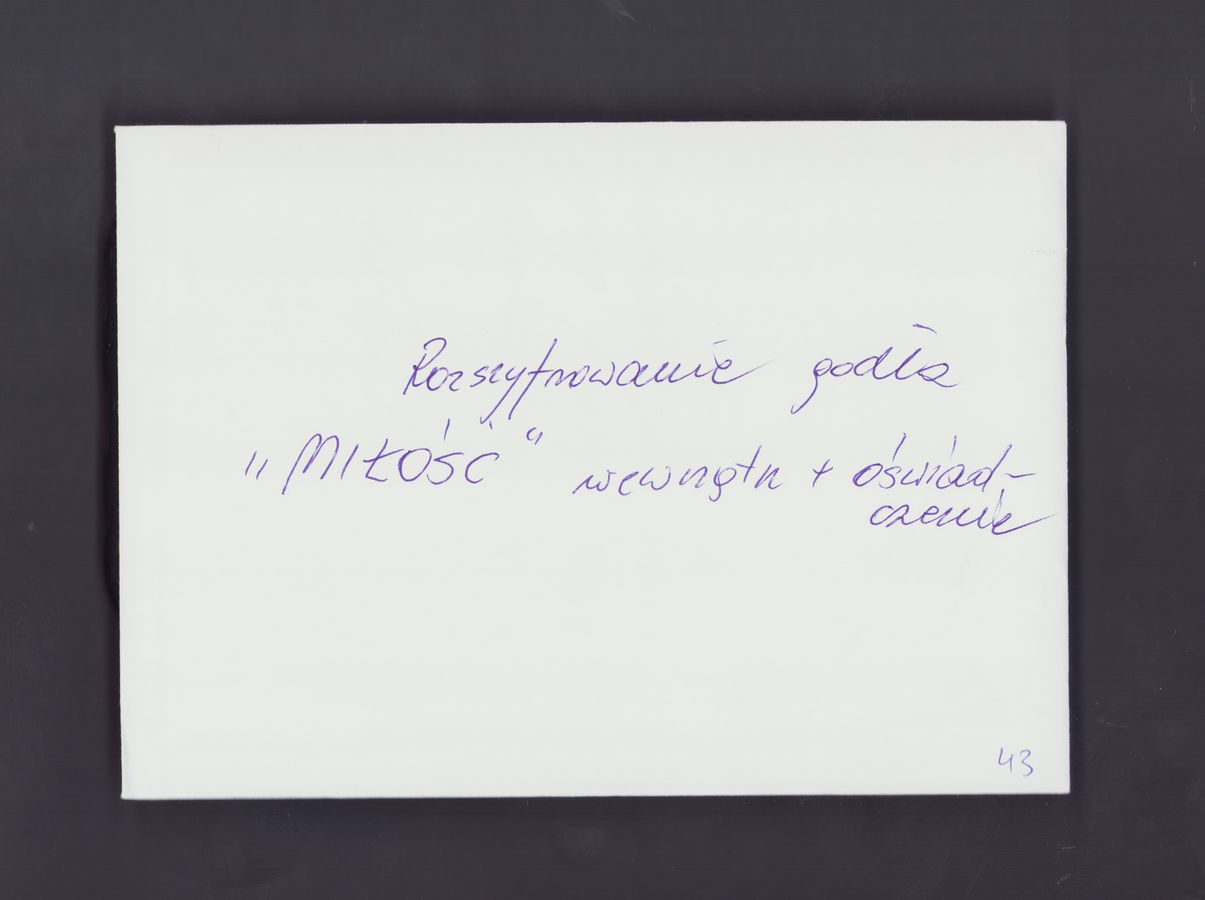 Rozszyfrowanie godła
„MIŁOŚĆ“ wewnątrz + oświad-
czenie
43